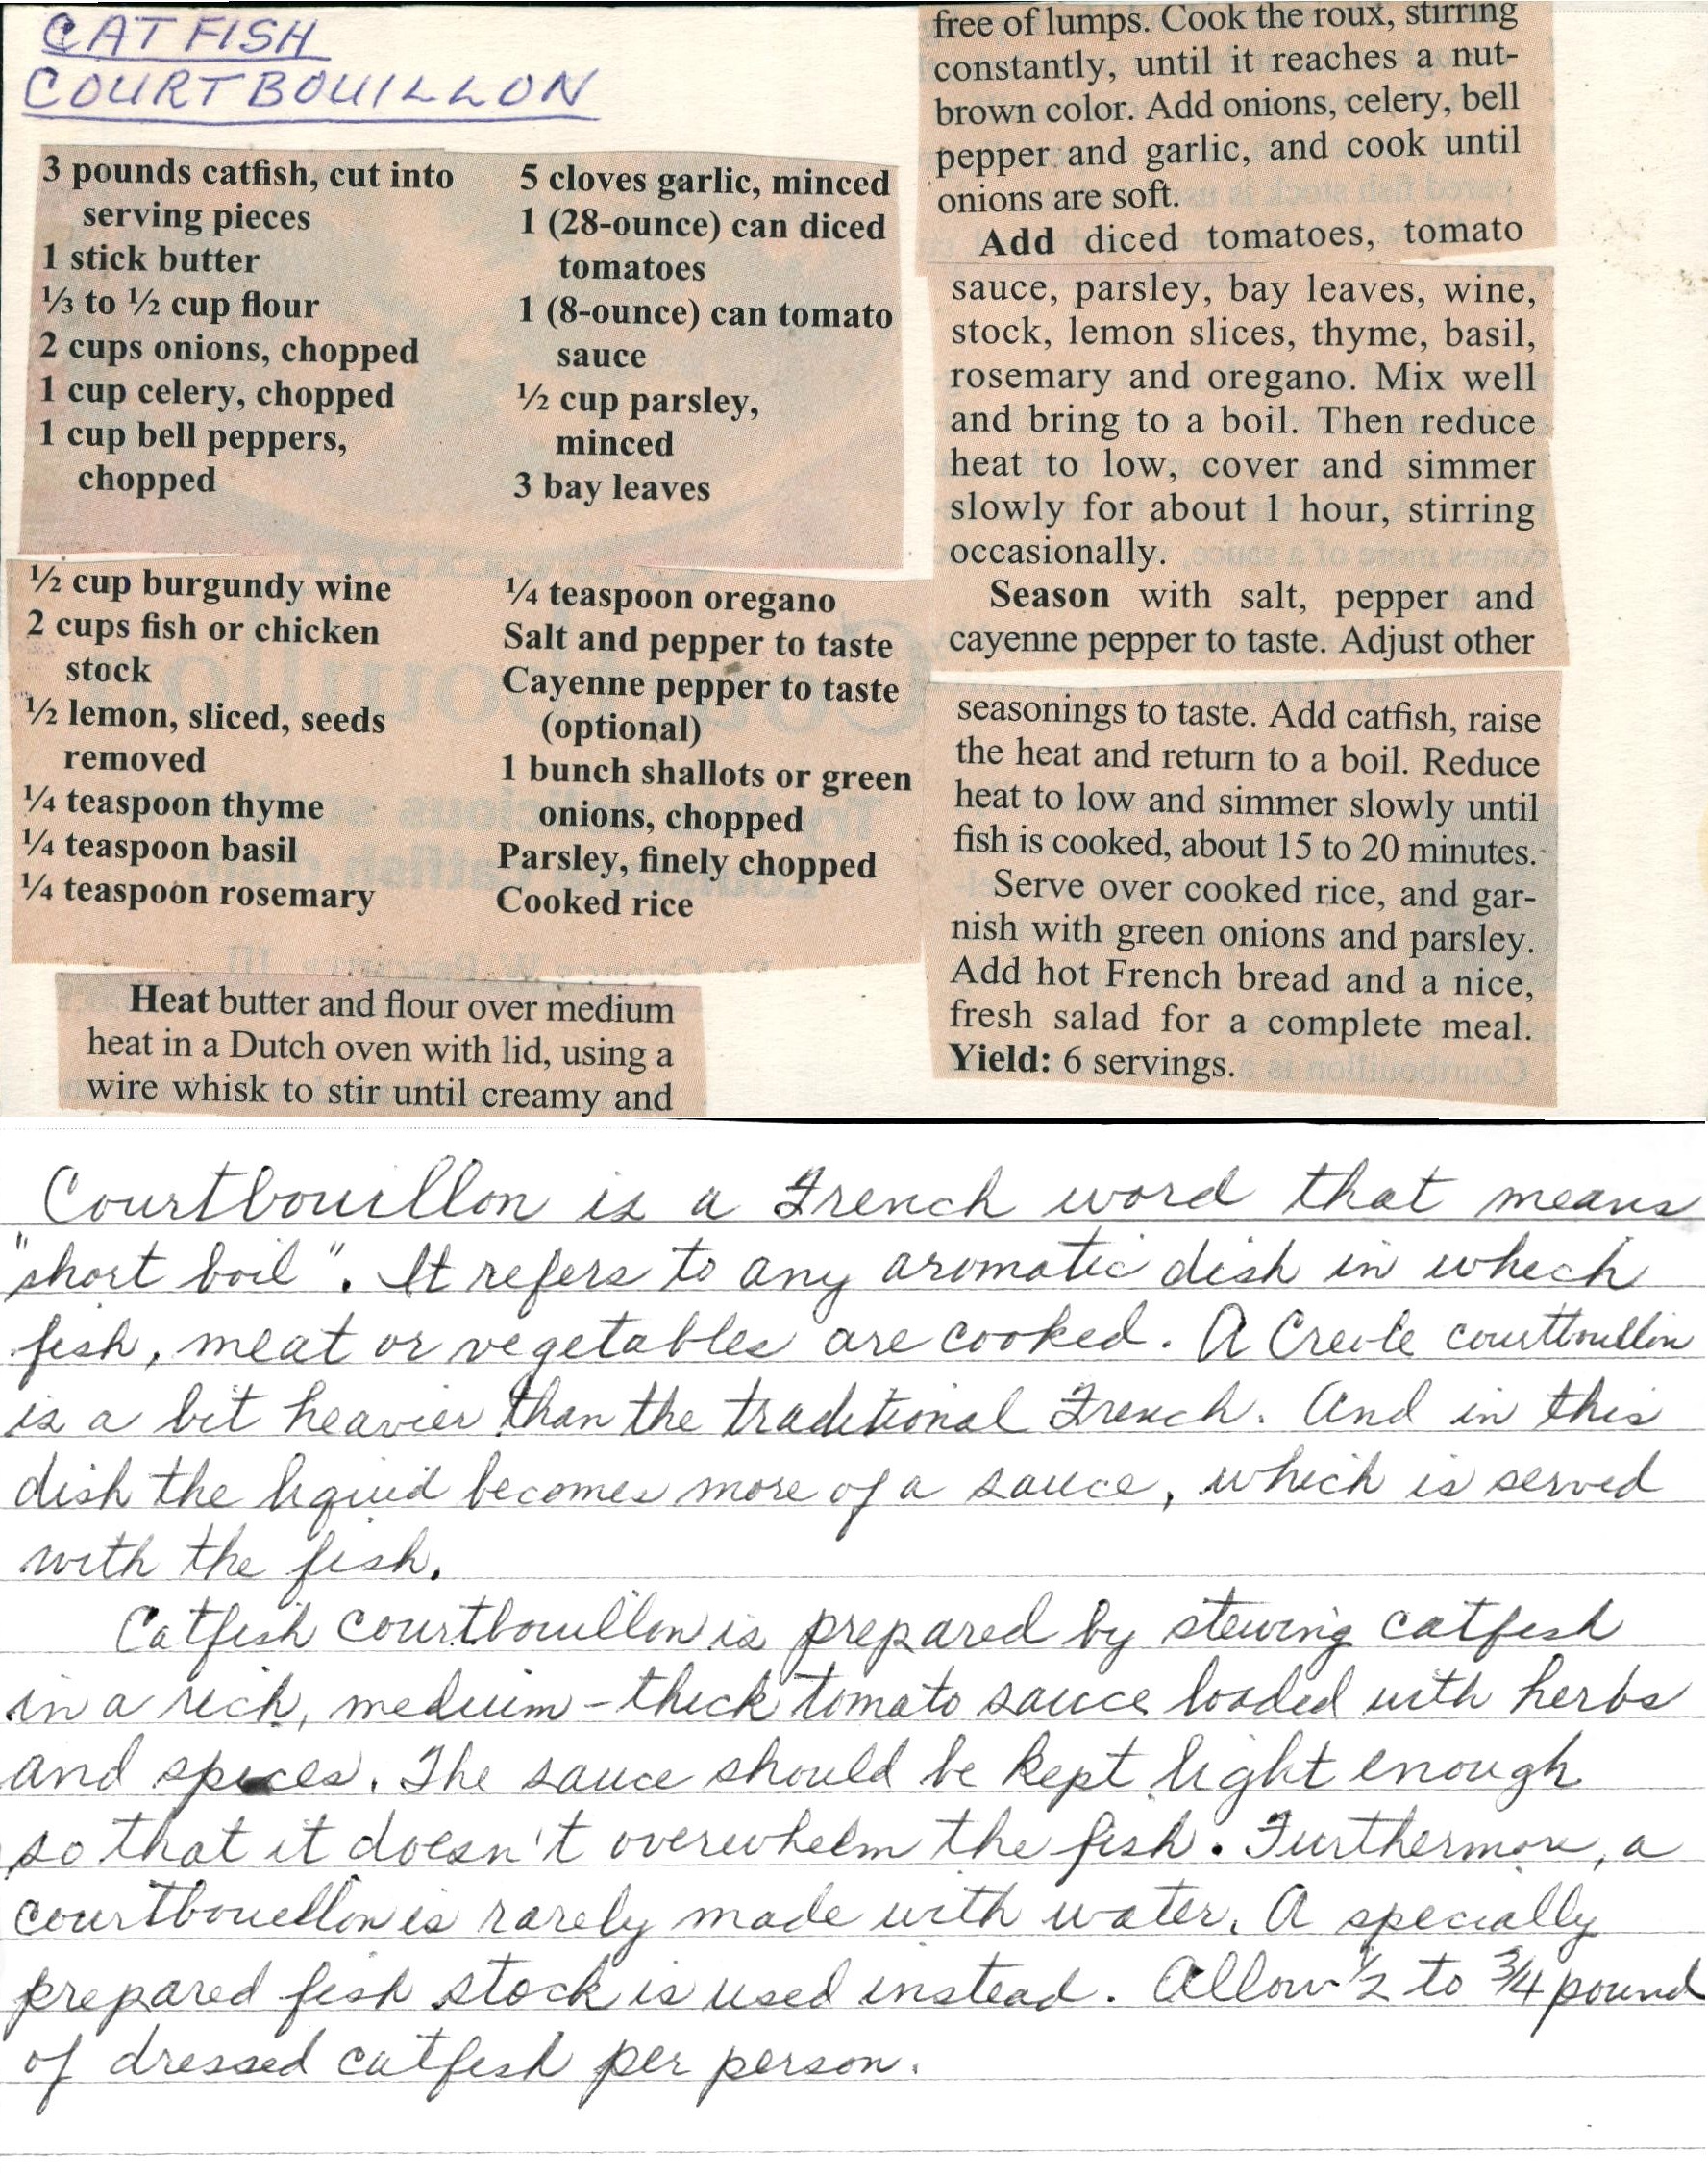 CATFISH
COURTBOUILLON
3 pounds catfish, cut into
serving pieces
1 stick butter
⅓ to ½ cup flour
2 cups onions, chopped
1 cup celery, chopped
1 cup bell peppers,
chopped
5 cloves garlic, minced
1 (28-ounce) can diced
tomatoes
1 (8-ounce) can tomato
sauce
½ cup parsley,
minced
3 bay leaves
½ cup burgundy wine
2 cups fish or chicken
stock
½ lemon, sliced, seeds
removed
¼ teaspoon thyme
¼ teaspoon basil
¼ teaspoon rosemary
¼ teaspoon oregano
Salt and pepper to taste
Cayenne pepper to taste
(optional)
1 bunch shallots or green
onions, chopped
Parsley, finely chopped
Cooked rice
Heat butter and flour over medium
heat in a Dutch oven with lid, using a
wire whisk to stir until creamy and
free of lumps. Cook the roux, stirring
constantly, until it reaches a nut-
brown color. Add onions, celery, bell
pepper and garlic, and cook until
onions are soft.
Add diced tomatoes, tomato
sauce, parsley, bay leaves, wine,
stock, lemon slices, thyme, basil,
rosemary and oregano. Mix well
and bring to a boil. Then reduce
heat to low, cover and simmer
slowly for about 1 hour, stirring
occasionally.
Season with salt, pepper and
cayenne pepper to taste. Adjust other
seasonings to taste. Add catfish, raise
the heat and return to a boil. Reduce
heat to low and simmer slowly until
fish is cooked, about 15 to 20 minutes.
Serve over cooked rice, and gar-
nish with green onions and parsley.
Add hot French bread and a nice,
fresh salad for a complete meal.
Yield: 6 servings.
Courtbouillon is a French word that means
"short boil". It refers to any aromatic dish in which
fish, meat or vegetables are cooked. A Creole courtbouillon
is a bit heavier than the traditional French. And in this
dish the liquid becomes more of a sauce, which is served
with the fish.
Catfish courtbouillon is prepared by stewing catfish
in a rich, medium-thick tomato sauce loaded with herbs
and spices. The sauce should be kept light enough
so that it doesn't overwhelm the fish. Furthermore, a
courtbouillon is rarely made with water. A specially
prepared fish stock is used instead. Allow ½ to ¾ pound
of dressed catfish per person.